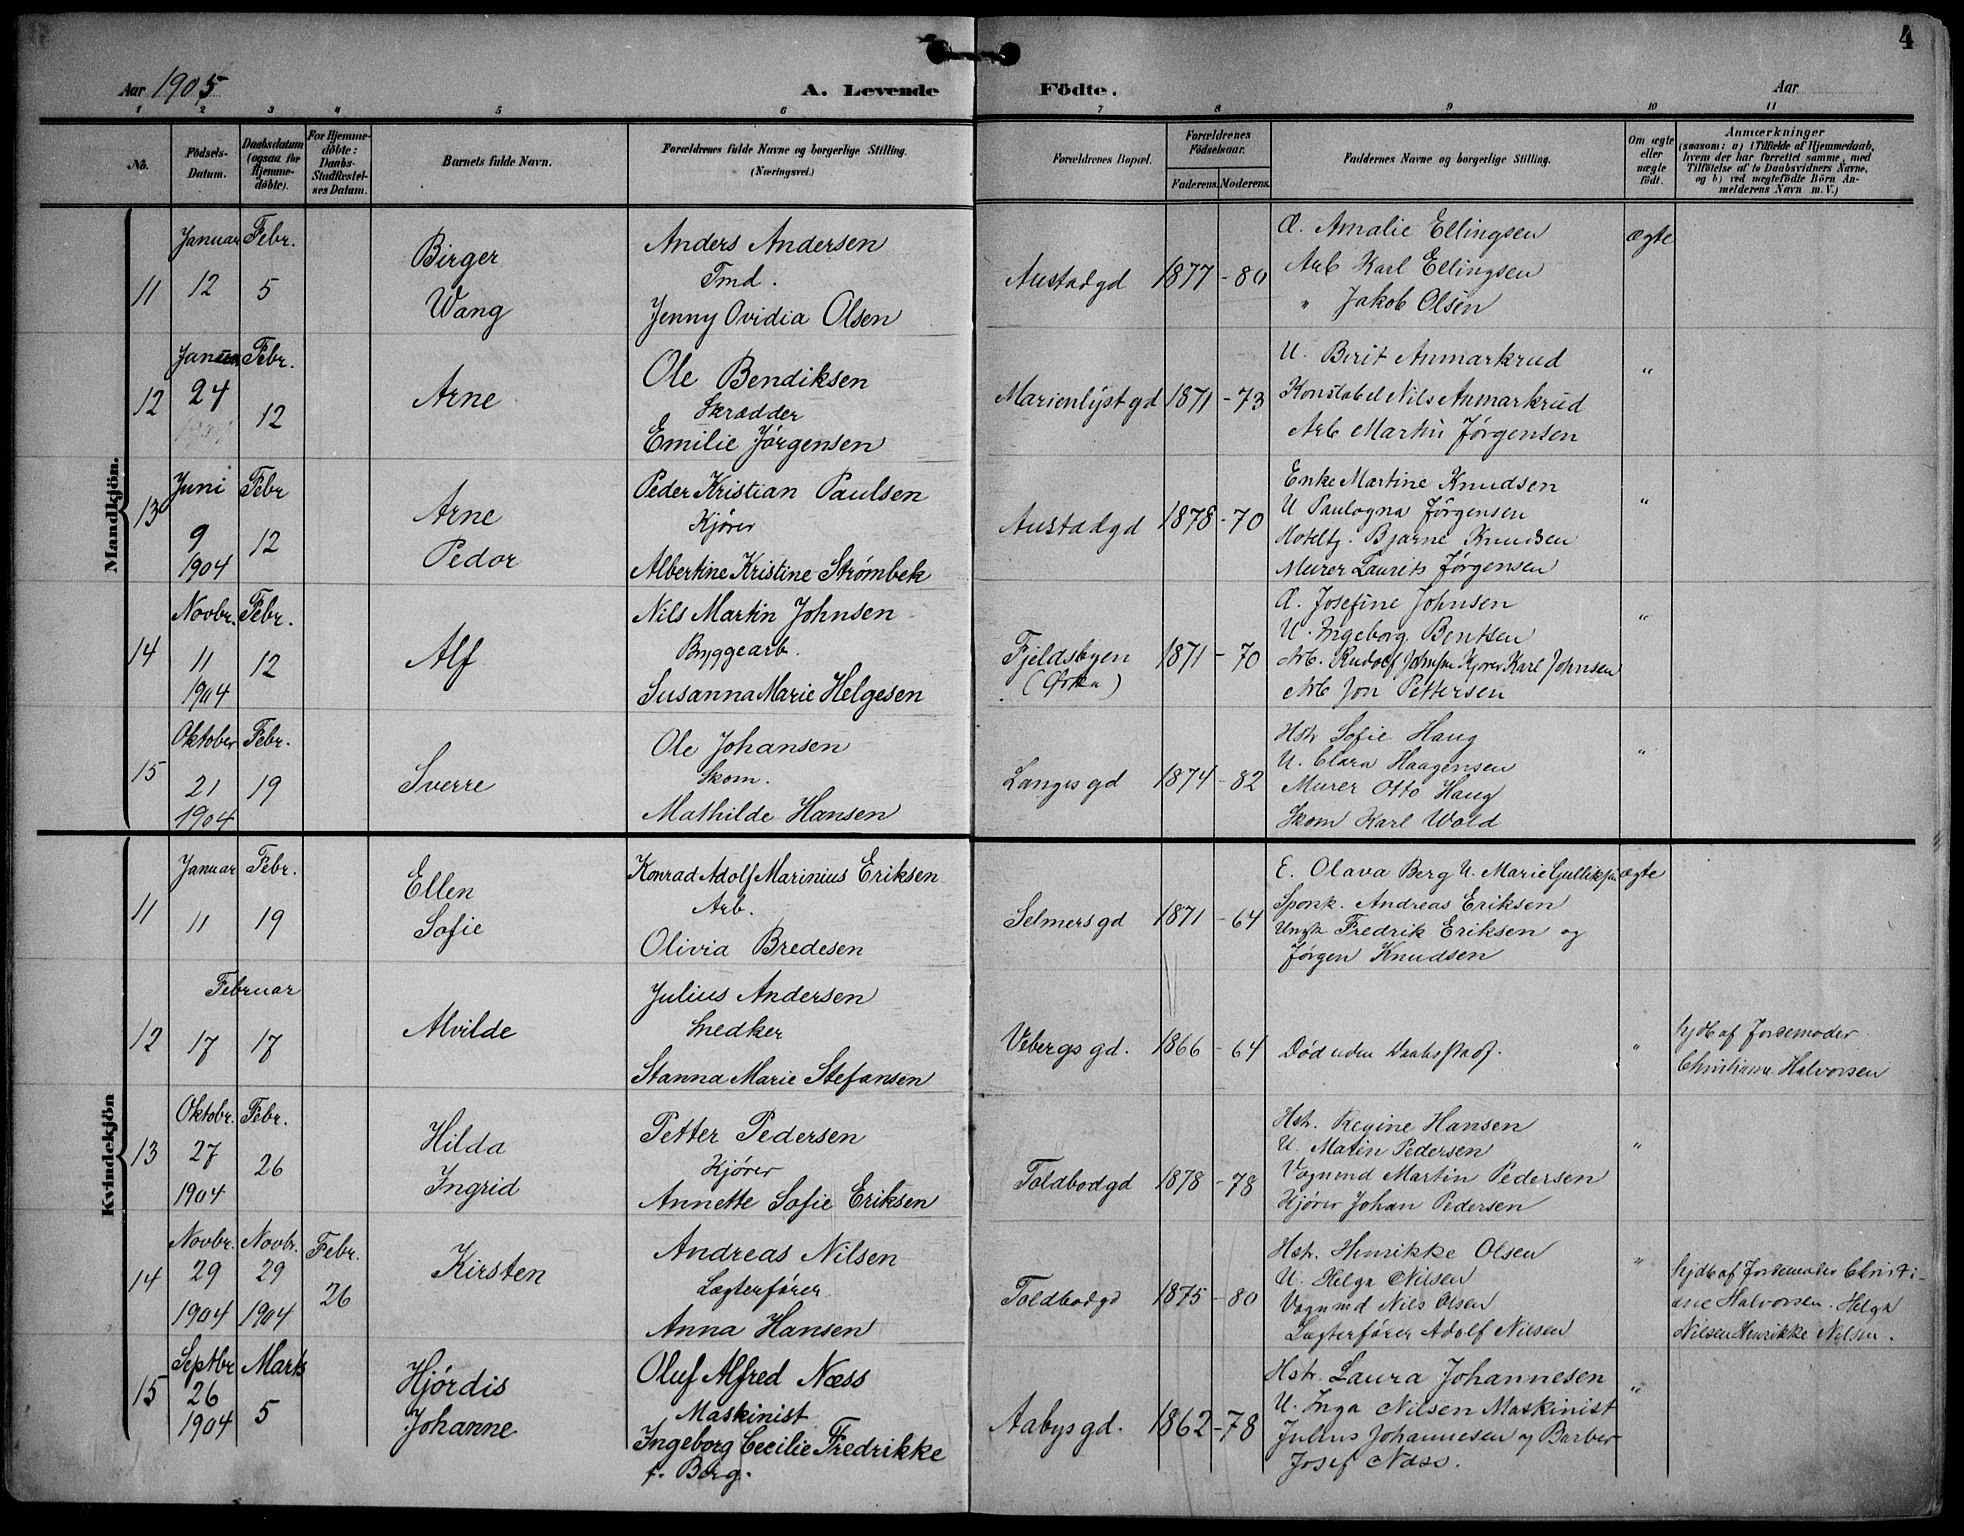 4
Aar 1905
A. Levende
Födte.
Aar
1 2 3 4 5 6 7 8 9 10 11
No.
Födsels-
Datum.
Daabsdatum
(ogsaa for
Hjemme-
döbte).
For Hjemme-
döbte:
Daabs-
Stadfæstel-
ses Datum.
Barnets fulde Navn.
Forældrenes fulde Navne og borgerlige Stilling.
(Næringsvei.)
Forældrenes Bopæl.
Forældrenes
Födselsaar.
Faderens. Moderens.
Faddernes Navne og borgerlige Stilling.
Om ægte
eller
uægte
födt.
Anmærkninger
(saasom: a) i Tilfælde af Hjemmedaab,
hvem der har forrettet samme, med
Tilföielse af to Daabsvidners Navne,
og b) ved uægtefödte Börn An-
melderens Navn m. V.)
Mandkjön.
11
Januar
12
Febr.
5
Birger
Wang
Anders Andersen
Tmd.
Jenny Ovidia Olsen
Austadgd
1877 - 80
Æ. Amalie Ellingsen
Arb Karl Ellingsen
" Jakob Olsen
ægte
12
Januar
24
Febr.
12
Arne
Ole Bendiksen
Skrædder
Emilie Jørgensen
Marienlystgd
1871 - 73
U. Berit Anmarkrud
Konstabel Nils Anmarkrud
Arb Martin Jørgensen
"
13
Juni
9
1904
Febr
12
Arne
Peder
Peder Kristian Paulsen
Kjører
Albertine Kristine Strømbek
Austadgd
1878 - 70
Enke Martine Knudsen
U Paulogna Jørgensen
Hoteltj. Bjarne Knudsen
Murer Laurits Jørgensen
"
14
Novbr.
11
1904
Febr.
12
Alf
Nils Martin Johnsen
Bryggearb.
Susanna Marie Helgesen
Fjeldsbyen
(Ørka)
1871 - 70
Æ. Josefine Johnsen
U. Ingeborg Bentsen
Arb. Rudolf Johnsen Kjører Karl Johnsen
Arb Jon Pettersen
"
15
Oktober
21
1904
Febr.
19
Sverre
Ole Johansen
Skom.
Mathilde Hansen
Langesgd
1874 - 82
Hstr Sofie Haug
U. Clara Haagensen
Murer Otto Haug
Skom Karl Wold
"
Kvindekjön
11
Januar
11
Febr.
19
Ellen
Sofie
Konrad Adolf Marinius Eriksen
Arb.
Olivia Bredesen
Selmersgd
1871 - 64
E. Olava Berg U. Marie Gulliksen
Sponk. Andreas Eriksen
Ungk Fredrik Eriksen og
Jørgen Knudsen
ægte
12
Februar
17
17
Alvilde
Julius Andersen
Snedker
Stanna Marie Stefansen
Vebergs gd.
1866 - 64
Død uden Daabsstadf.
"
hjdb af Jordemoder
Christiane Halvorsen
13
Oktobr.
27
1904
Febr.
26
Hilda
Ingrid
Petter Pedersen
Kjører
Annette Sofie Eriksen
Toldbodgd
1878 - 78
Hstr. Regine Hansen
U. Matin Pedersen
Vognmd Martin Pedersen
Kjører Johan Pedersen
"
14
Novbr.
29
1904
Novbr.
29
1904
Febr.
26
Kirsten
Andreas Nilsen
Lægterfører
Anna Hansen
Toldbodgd
1875 - 80
Hstr. Henrikke Olsen
U. Helga Nilsen
Vognmd Nils Olsen
Lægterfører Adolf Nilsen
"
hjdb af Jordemoder Christi-
ane Halvorsen. Helga
Nilsen Henrikke Nilsen.
15
Septbr
26
1904
Marts
5
Hjørdis
Johanne
Oluf Alfred Næss
Maskinist
Ingeborg Cecilie Fredrikke
f. Berg.
Aabys gd.
1862 - 78
Hstr. Laura Johannesen
U. Inga Nilsen Maskinist
Julius Johannesen og Barber
Josef Næss.
"